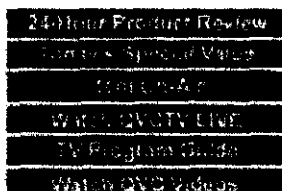 24-Hour Product Review
Today's Special Value
Item On-Air
Watch QVCTV LIVE
TV Program Guide
Watch QVC Videos